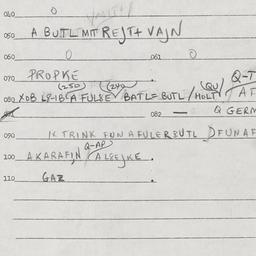 040 0
050 A BUTL MIT REJT+ VAJN
060 0 061 0
070 PROPKE
(250) (240) (QU) Q-T
080 XOB LP-IB A FULKE / BATL= BUTL / HOLT / AF
082 — Q GERM
090 K TRINK FUN A FULER BUTL D FUN AF
Q-AP
100 A KARAFIN / A LGEJKE .
110 GAZ .